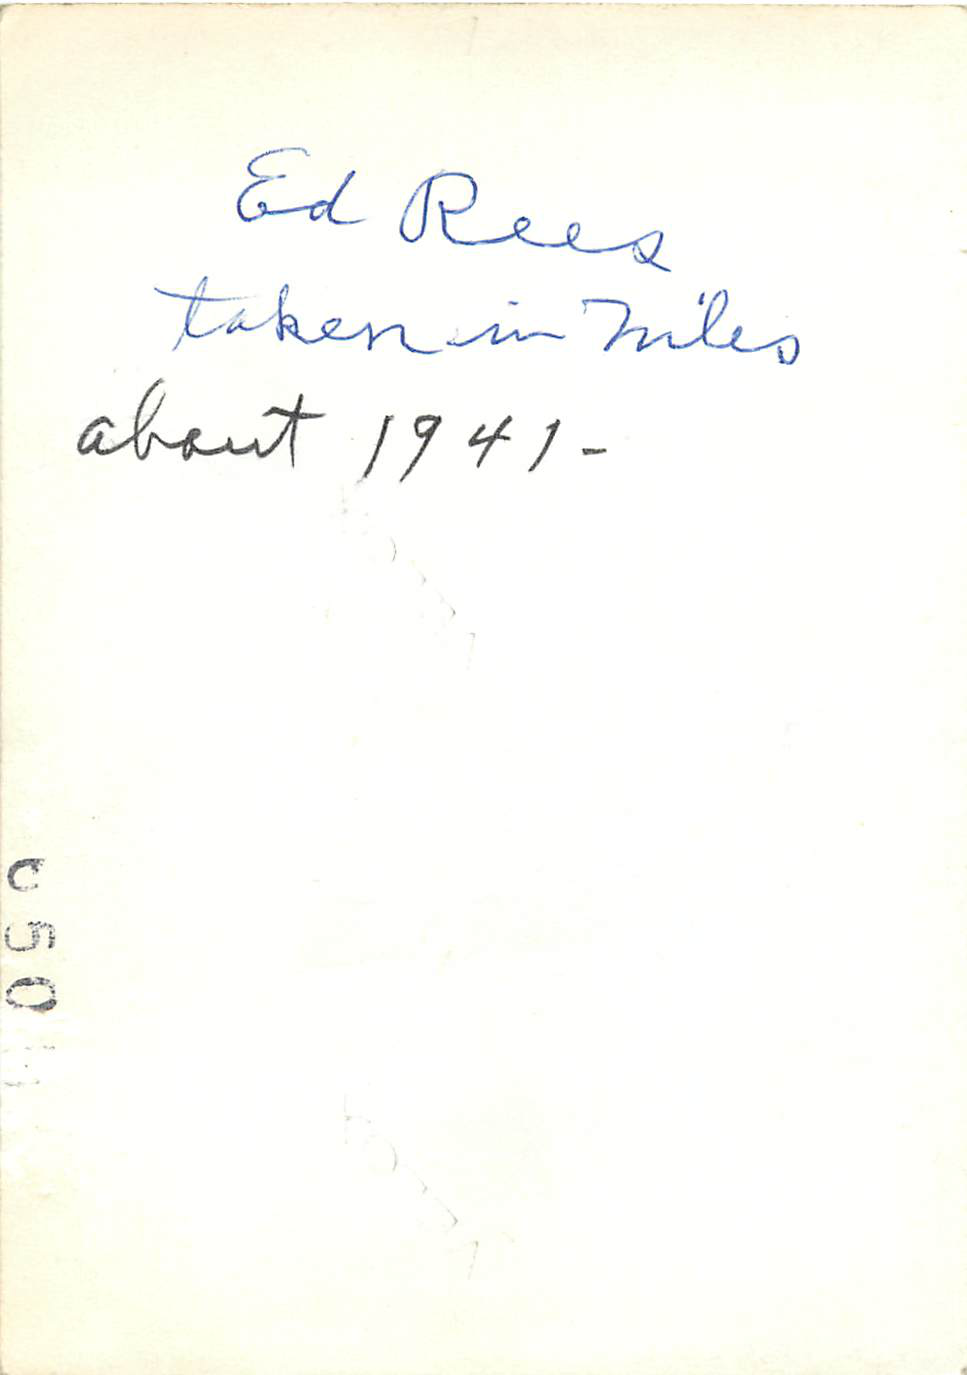 Ed Rees
taken in Niles
about 1941-
050